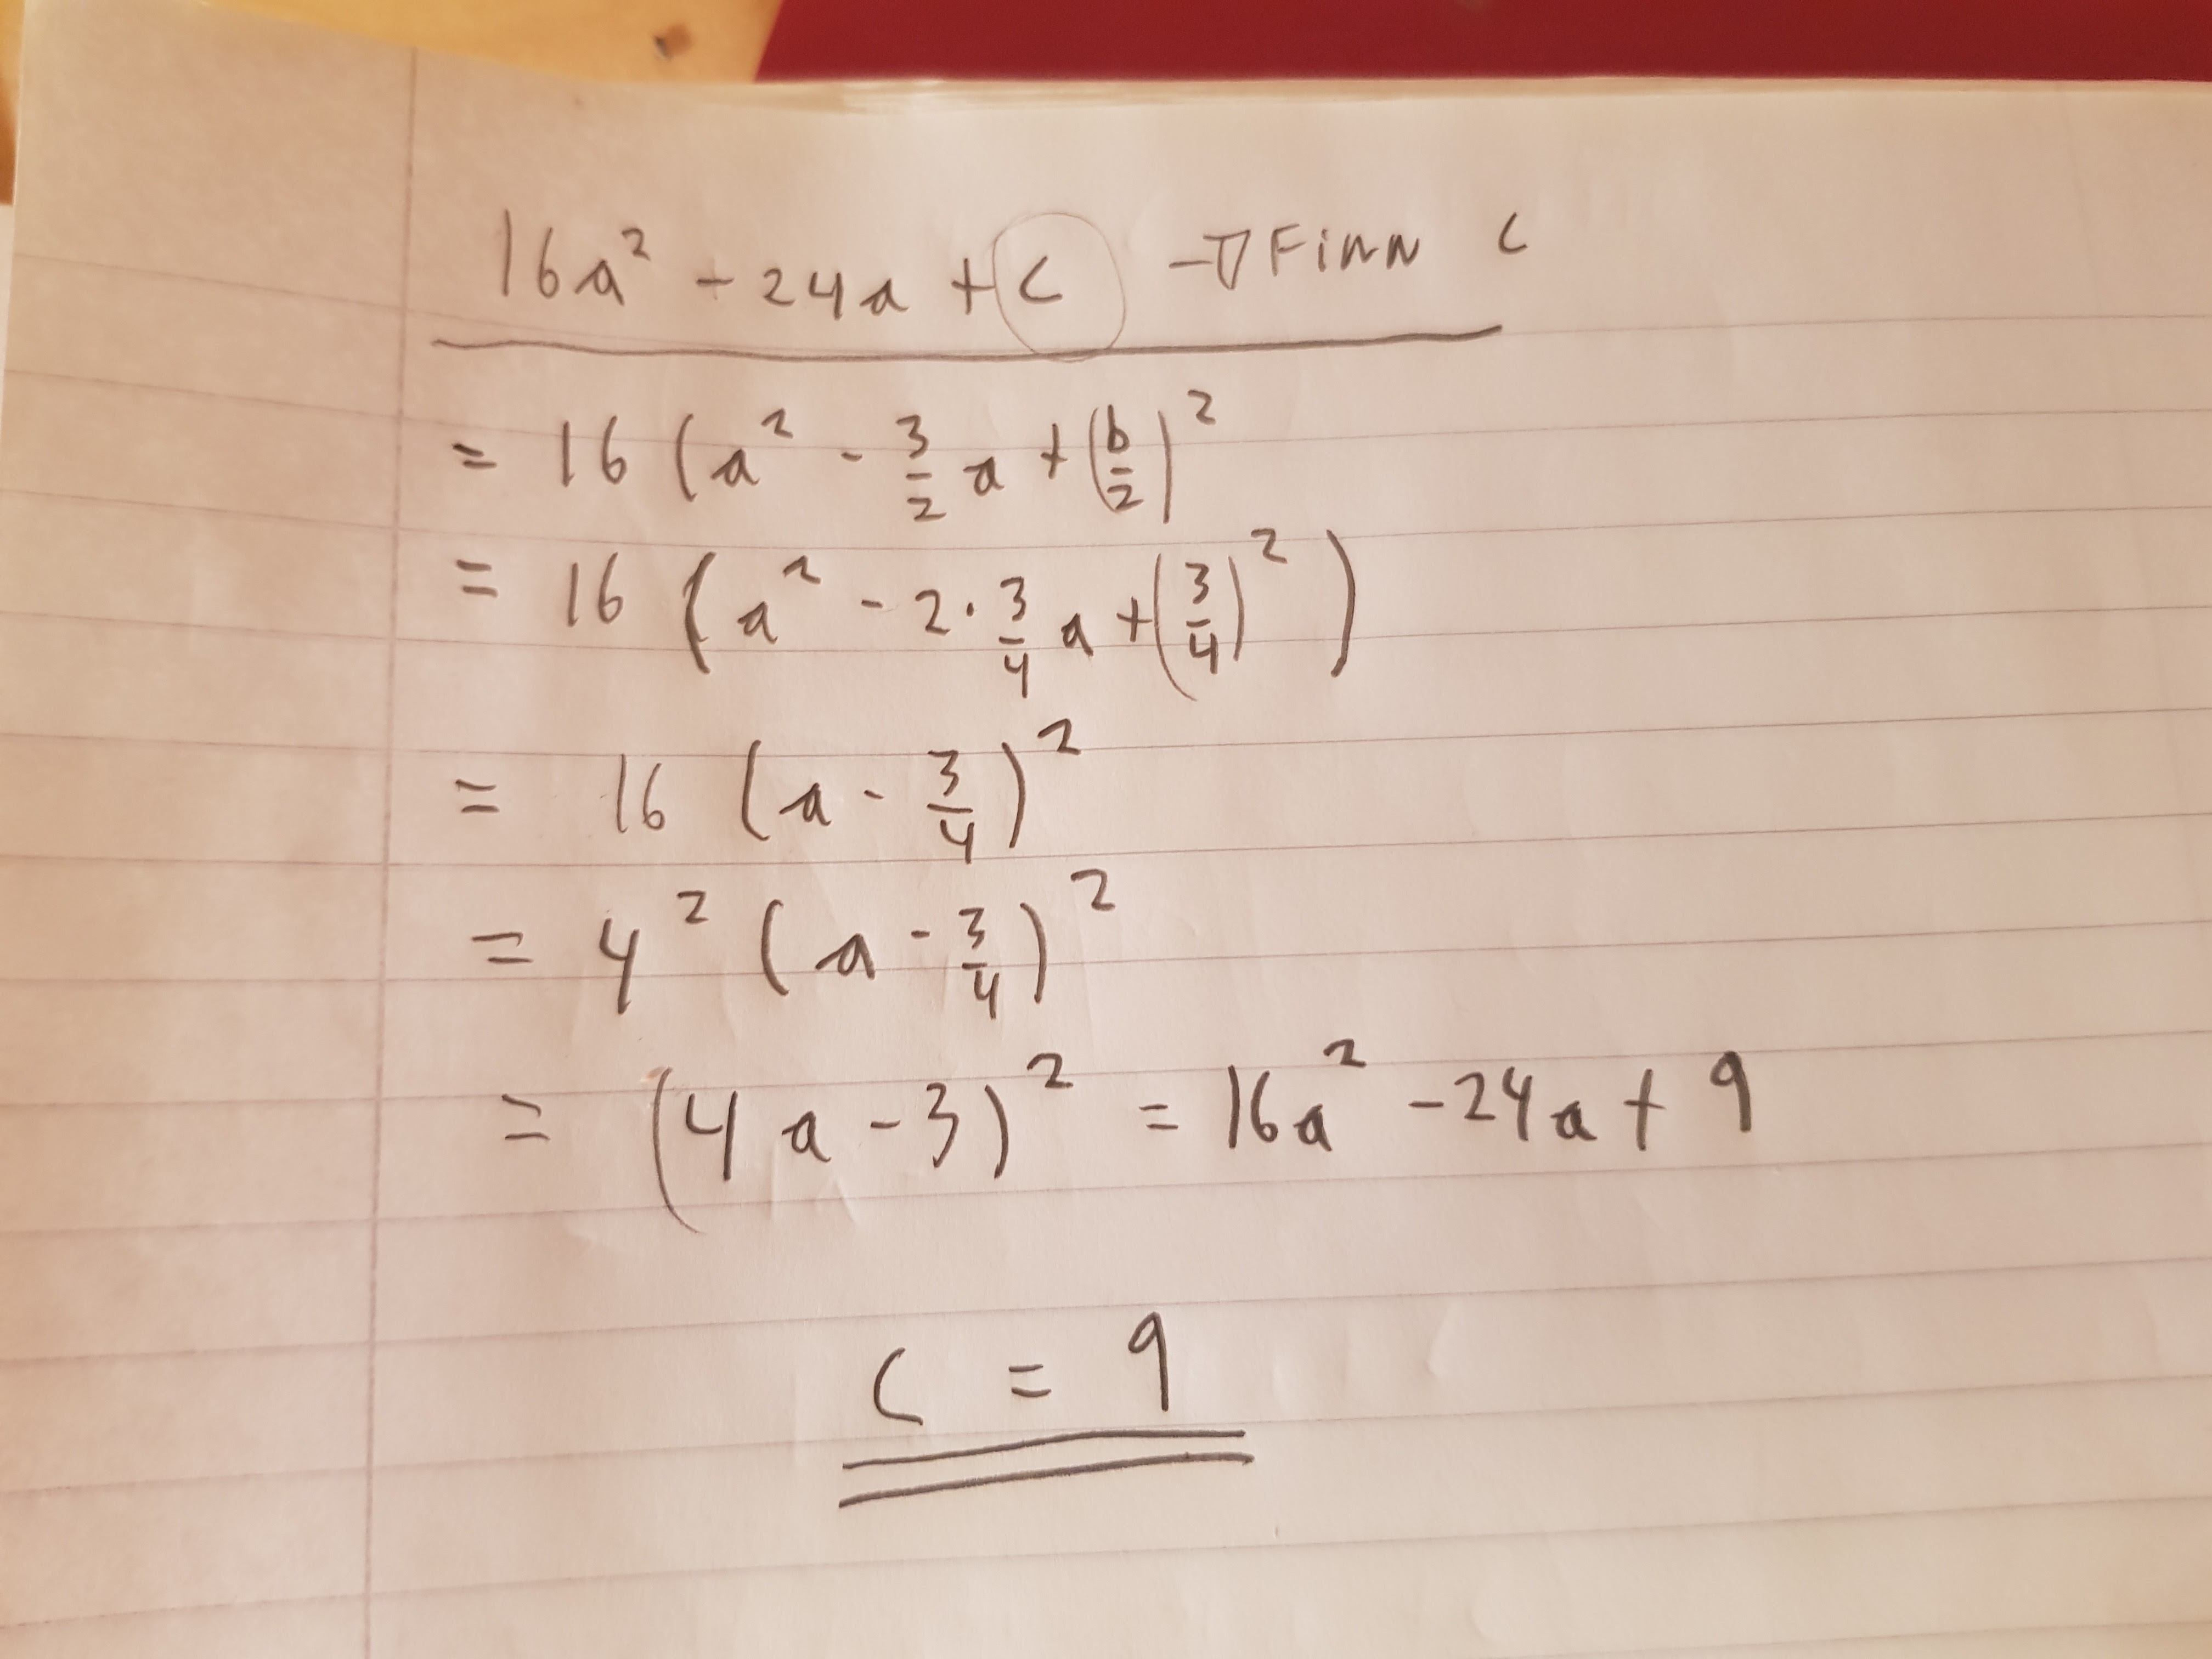 16a² - 24a + c → Finn c
= 16 (a² - 3/2 a + (b/2)²
= 16 (a² - 2 · 3/4 a + (3/4)²)
= 16 (a - 3/4)²
= 4² (a - 3/4)²
= (4a - 3)² = 16a² - 24a + 9
c = 9